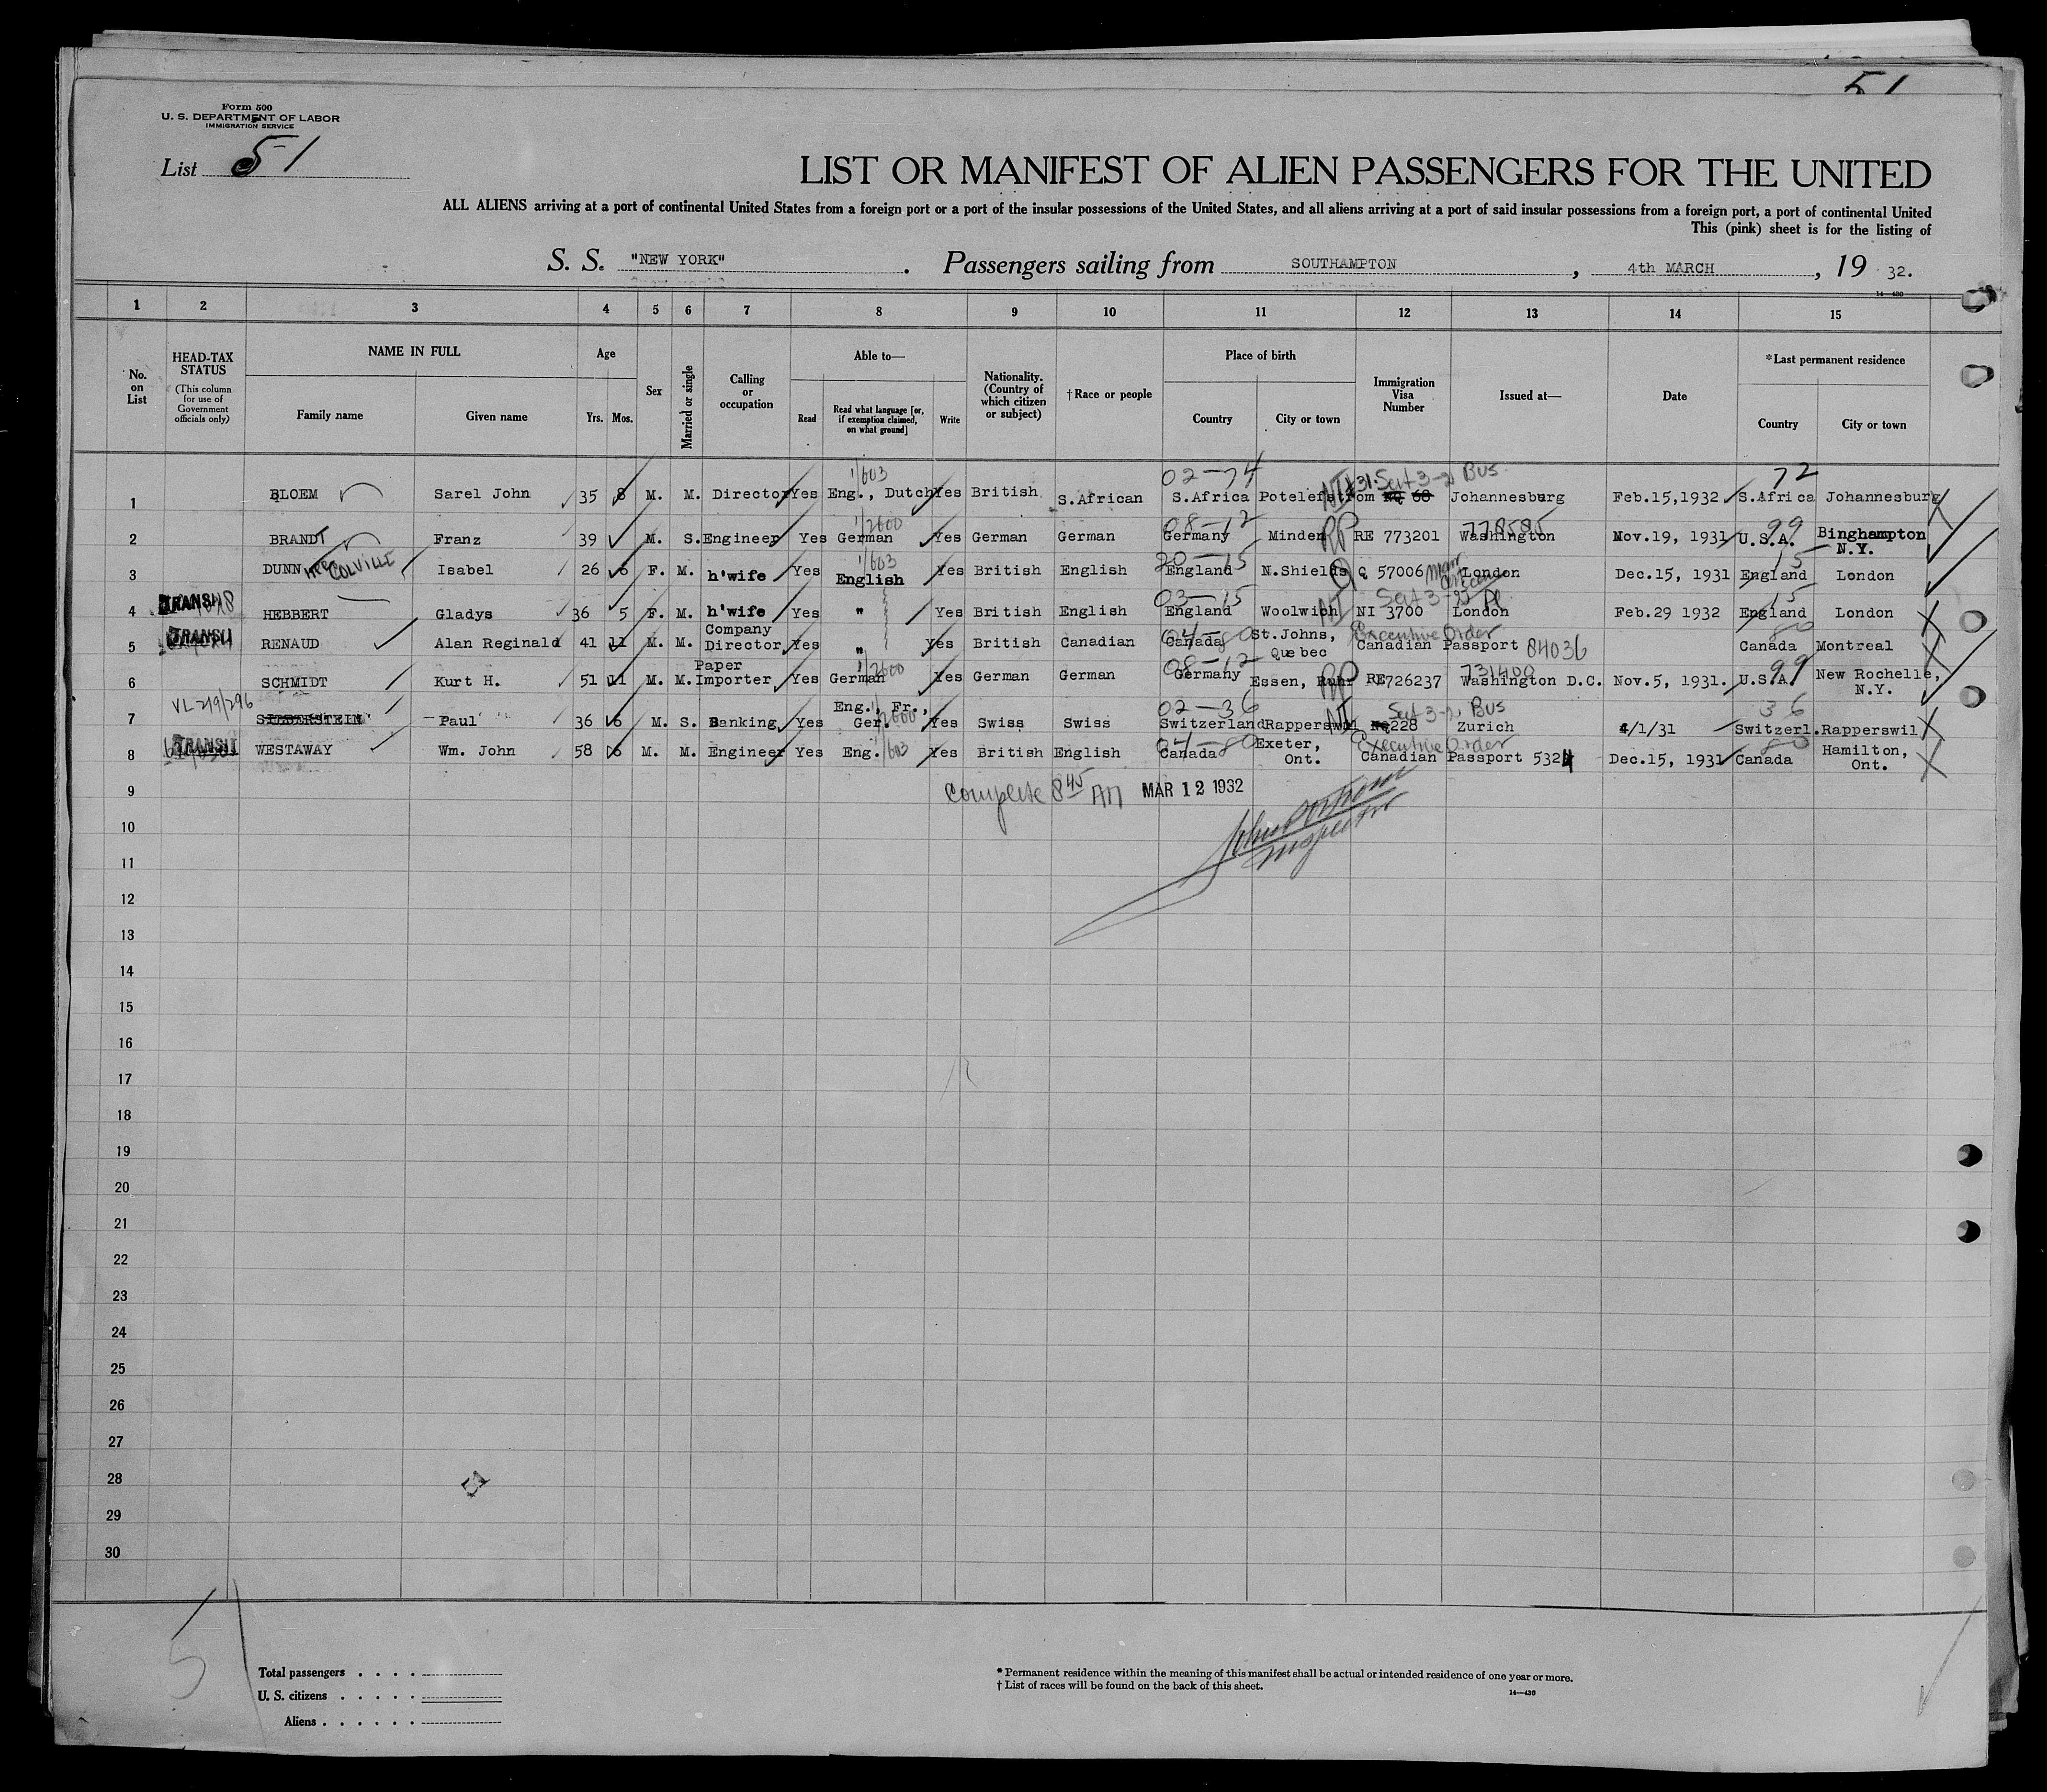 51
Form 500
U. S. DEPARTMENT OF LABOR
IMMIGRATION SERVICE
List 51
LIST OR MANIFEST OF ALIEN PASSENGERS FOR THE UNITED
ALL ALIENS arriving at a port of continental United States from a foreign port or a port of the insular possessions of the United States, and all aliens arriving at a port of said insular possessions from a foreign port, a port of continental United
This (pink) sheet is for the listing of
S. S. "NEW YORK". Passengers sailing from SOUTHAMPTON, 4th MARCH, 19 32.
14—430
1 2 3 4 5 6 7 8 9 10 11 12 13 14 15
No. on List
HEAD-TAX STATUS
(This column for use of Government officials only)
NAME IN FULL
Family name
Given name
Age
Yrs. Mos.
Sex
Married or single
Calling or occupation
Able to—
Read
Read what language [or, if exemption claimed, on what ground]
Write
Nationality. (Country of which citizen or subject)
† Race or people
Place of birth
Country
City or town
Immigration Visa Number
Issued at—
Date
*Last permanent residence
Country
City or town
1/603 02-74 Sect 3-2 Bus 72
1 BLOEM Sarel John 35 8 M. M. Director Yes Eng., Dutch Yes British S.African S.Africa Potelefstrom NI NQ 68 Johannesburg Feb.15,1932 S.Africa Johannesburg
1/2600 08-12 778585 99
2 BRANDT Franz 39 M. S. Engineer Yes German Yes German German Germany Minden RP RE 773201 Washington Nov.19, 1931 U.S.A. Binghampton N.Y.
1/603 20-15 15
3 DUNN nee COLVILLE Isabel 26 6 F. M. h'wife Yes English Yes British English England N.Shields Q 57006 London Dec.15, 1931 England London
TRANSIT 03-15 Sect 3- 15
4 HEBBERT Gladys 36 5 F. M. h'wife Yes " Yes British English England Woolwich NI 3700 London Feb.29 1932 England London
TRANSIT 04-80 Executive Order 80
5 RENAUD Alan Reginald 41 11 M. M. Company Director Yes " Yes British Canadian Canada St.Johns, Quebec Canadian Passport 84036 Canada Montreal
1/2600 08-12 731400 99
6 SCHMIDT Kurt H. 51 11 M. M. Paper Importer Yes German Yes German German Germany Essen, Ruhr RP RE726237 Washington D.C. Nov.5, 1931. U.S.A. New Rochelle, N.Y.
VL-219/296 02-36 Sect 3-2 Bus 36
7 SILBERSTEIN Paul 36 6 M. S. Banking Yes Eng., Fr., Ger. Yes Swiss Swiss Switzerland Rapperswil NI NQ 228 Zurich 4/1/31 Switzerl. Rapperswil
TRANSIT 1/603 04-80 Executive Order 80
8 WESTAWAY Wm. John 58 6 M. M. Engineer Yes Eng. Yes British English Canada Exeter, Ont. Canadian Passport 5324 Dec.15, 1931 Canada Hamilton, Ont.
9 Complete 8 45 AM MAR 12 1932
Inspector
10
11
12
13
14
15
16
17
18
19
20
21
22
23
24
25
26
27
28
29
30
Total passengers . . . .
U. S. citizens . . . . .
Aliens . . . . . .
* Permanent residence within the meaning of this manifest shall be actual or intended residence of one year or more.
† List of races will be found on the back of this sheet.
14—430